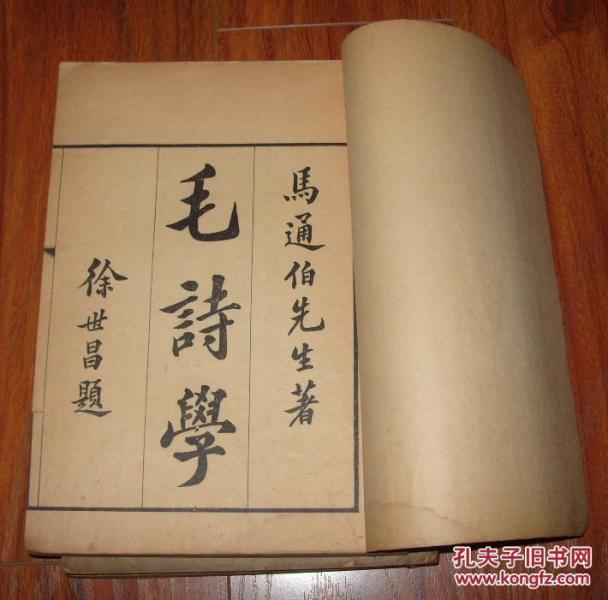 馬通伯先生著
毛詩學
徐世昌題
孔夫子旧书网
www.kongfz.com